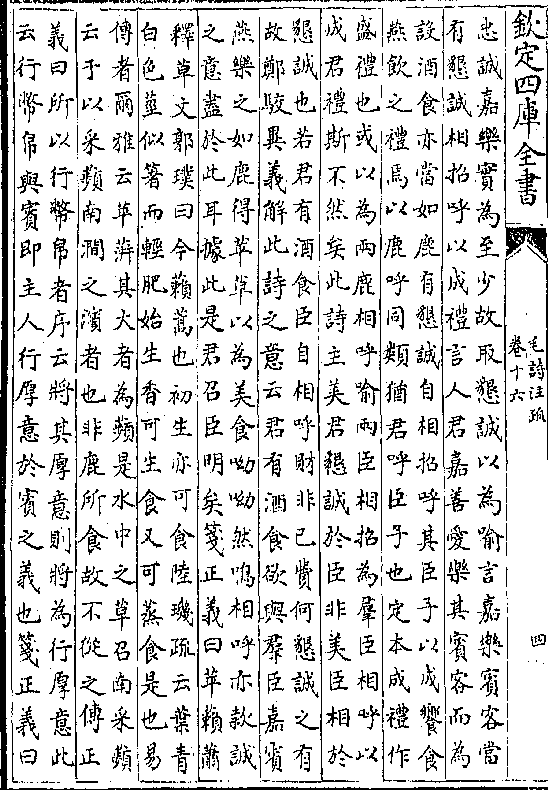 欽定四庫全書
毛詩注疏
卷十六
四
忠誠嘉樂實為至少故取懇誠以為喻言嘉樂賓客當
有懇誠相招呼以成禮言人君嘉善愛樂其賓客而為
設酒食亦當如鹿有懇誠自相招呼其臣子以成饗食
燕飲之禮焉以鹿呼同類猶君呼臣子也定本成禮作
盛禮也或以為兩鹿相呼喻兩臣相招為羣臣相呼以
成君禮斯不然矣此詩主美君懇誠於臣非美臣相於
懇誠也若君有酒食臣自相呼財非已費何懇誠之有
故鄭駮異義解此詩之意云君有酒食欲與羣臣嘉賓
燕樂之如鹿得苹草以為美食呦呦然鳴相呼亦款誠
之意盡於此耳據此是君召臣明矣箋正義曰苹藾蕭
釋草文郭璞曰今藾蒿也初生亦可食陸璣疏云葉青
白色莖似箸而輕肥始生香可生食又可蒸食是也易
傳者爾雅云苹蓱其大者為蘋是水中之草召南采蘋
云于以采蘋南澗之濱者也非鹿所食故不從之傳正
義曰所以行幣帛者序云將其厚意則將為行厚意此
云行幣帛與賓即主人行厚意於賓之義也箋正義曰